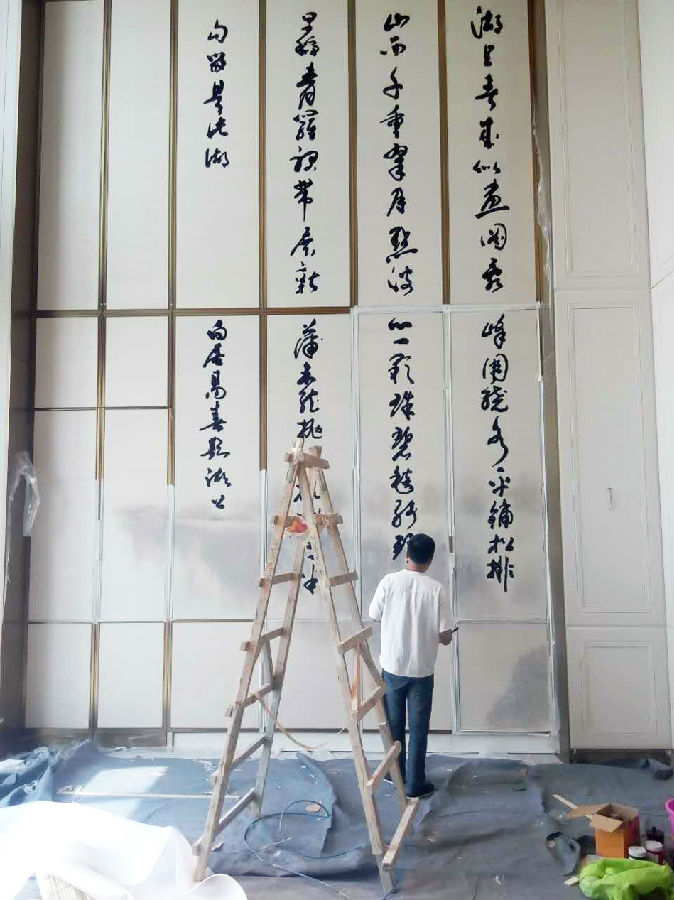 湖上春来似画图乱峰围绕水平铺松排
山面千重翠月点波心一颗珠碧毯线头
早稻青罗裙带展新蒲未能抛
勾留是此湖
白居易春题湖上